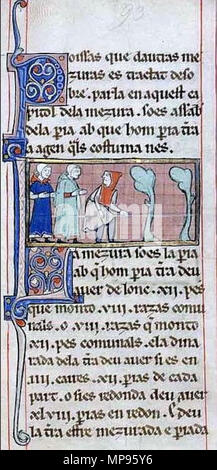 93
Possas que dautras me
zuras es tractat deso
bre. parla en aquest ca
pitol dela mezura. so es assab
dela pia ab que hom pia tra
a agen qls costuma nes.
La mezura so es la pia
ab q hom pia tra deu
auer de lonc .xii. pes
que monto .viii. razas comu
nals. o .viii. razas q monto
.xii. pes comunals. ela dina
rada dela tra deu auer si es en
.iiii. caires .xii. pias de cada
part. o si es redonda deu auer
xl.viii. pias en redon. E deu
la tra estre mezurada e piada
alamy
Image ID: MP95Y6
www.alamy.com